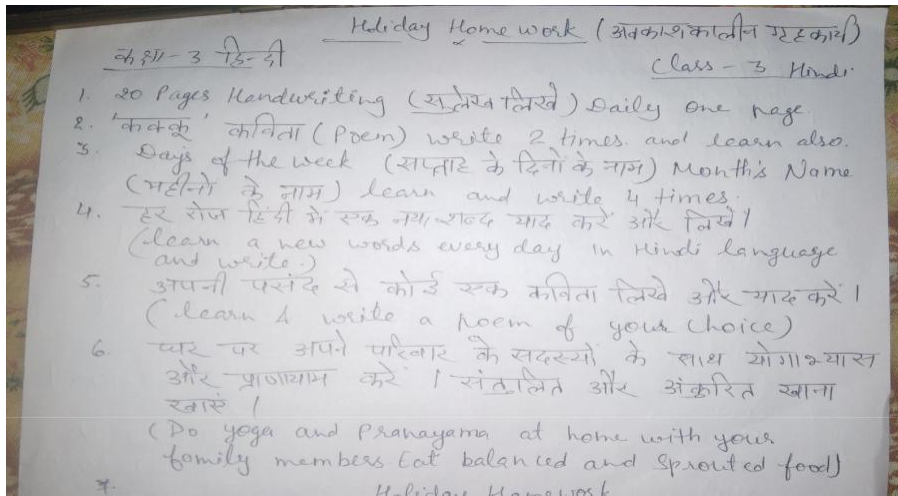 Holiday Home work (अवकाशकालीन गृहकार्य)
कक्षा-3 हिन्दी
Class - 3 Hindi.
1. 20 Pages Handwriting (सुलेख लिखे) Daily one page
2. 'कक्कू' कविता (Poem) write 2 times. and learn also.
3. Days of the week (सप्ताह के दिनों के नाम) Month's Name
(महीनो के नाम) learn and write 4 times.
4. हर रोज हिंदी में एक नया शब्द याद करें और लिखें।
(learn a new words every day in Hindi language
and write.)
5. अपनी पसंद से कोई एक कविता लिखे और याद करें।
(learn & write a poem of your choice)
6. घर पर अपने परिवार के सदस्यों के साथ योगाभ्यास
और प्राणायाम करें। संतुलित और अंकुरित खाना
खाएं।
(Do yoga and Pranayama at home with your
family members Eat balanced and Sprouted food)
7. Holiday Homework